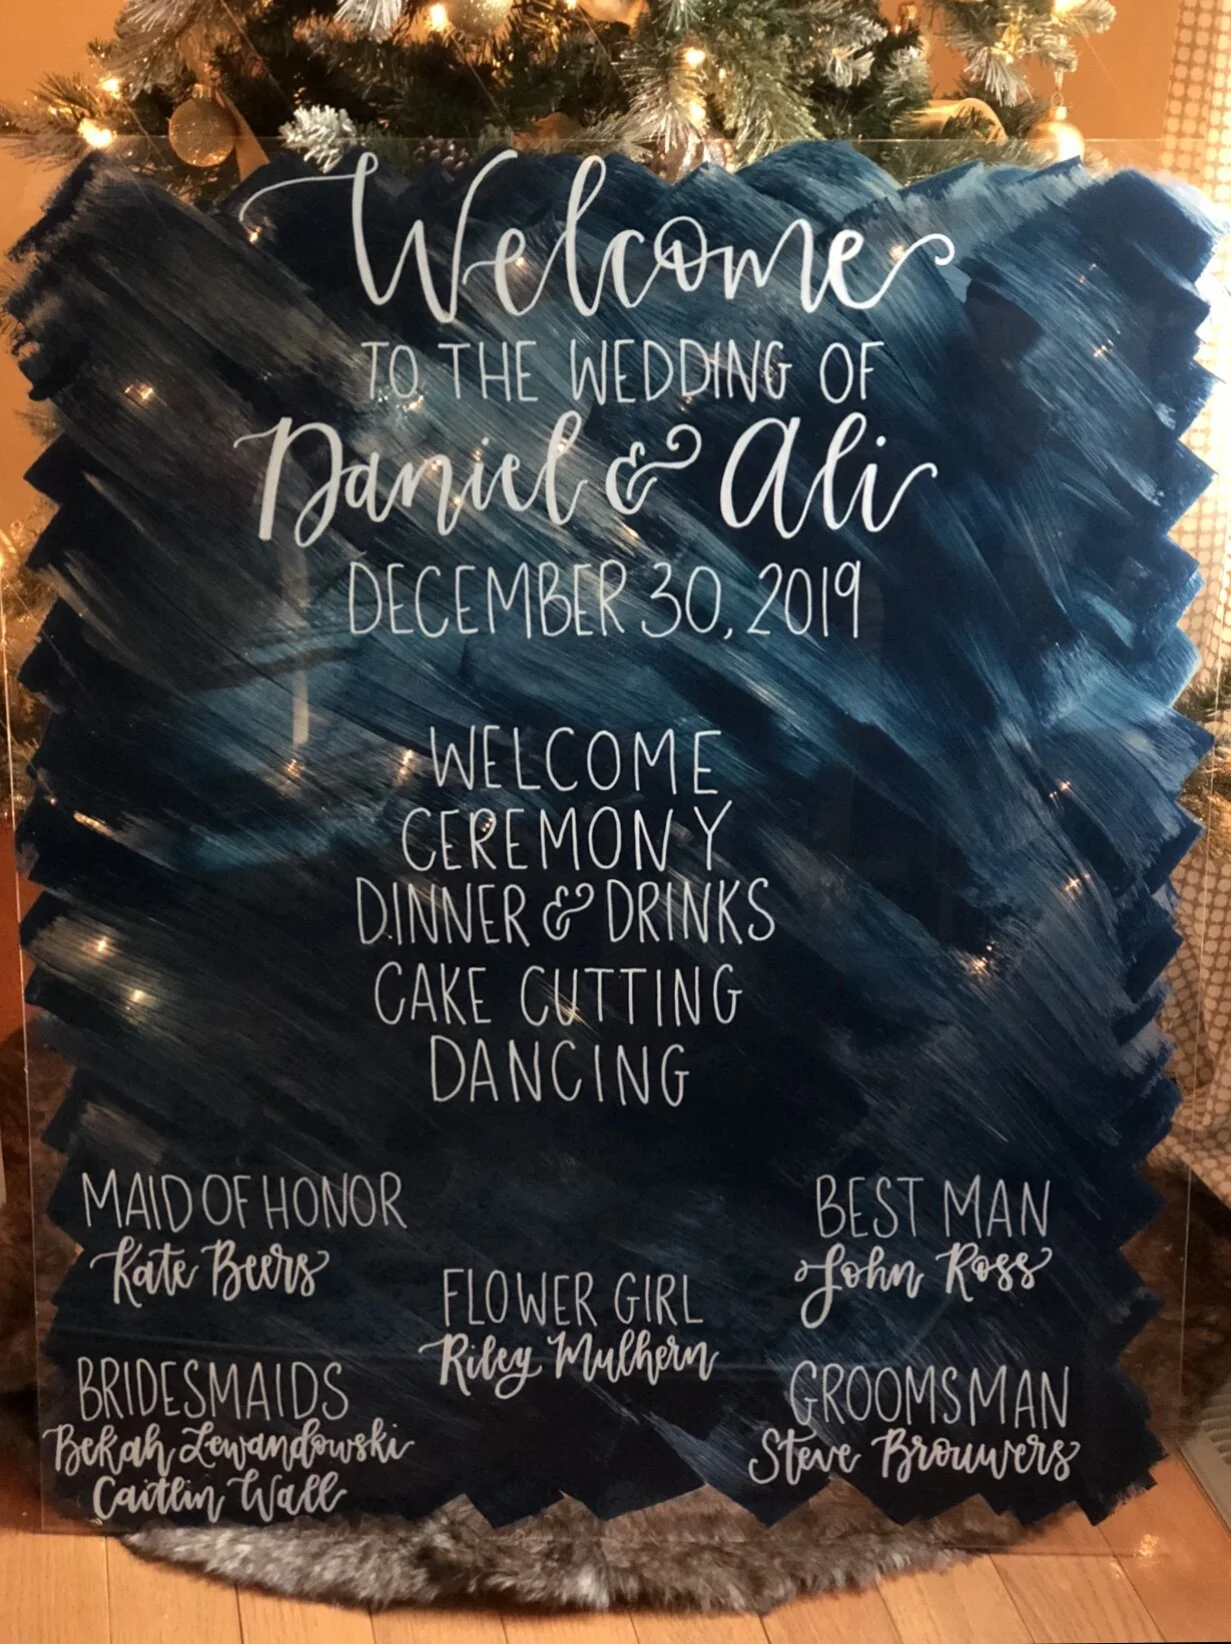 Welcome
TO THE WEDDING OF
Daniel & Ali
DECEMBER 30, 2019
WELCOME
CEREMONY
DINNER & DRINKS
CAKE CUTTING
DANCING
MAID OF HONOR
Kate Beers
BRIDESMAIDS
Bekah Lewandowski
Caitlin Wall
FLOWER GIRL
Riley Mulhern
BEST MAN
John Ross
GROOMSMAN
Steve Brouwers